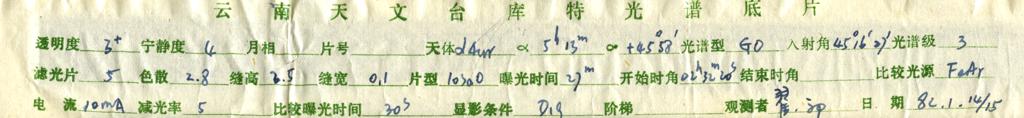 云南天文台库特光谱底片
透明度 3+ 宁静度 4 月相 片号 天体 α Aur α 5h 13m δ +45°58′ 光谱型 G0 入射角 45°16′27″ 光谱级 3
滤光片 5 色散 2.8 缝高 2.5 缝宽 0.1 片型 103a0 曝光时间 27m 开始时角 02h32m20s 结束时角 比较光源 FeAr
电流 10mA 减光率 5 比较曝光时间 30s 显影条件 D19 阶梯 观测者 日期 82.1.14/15